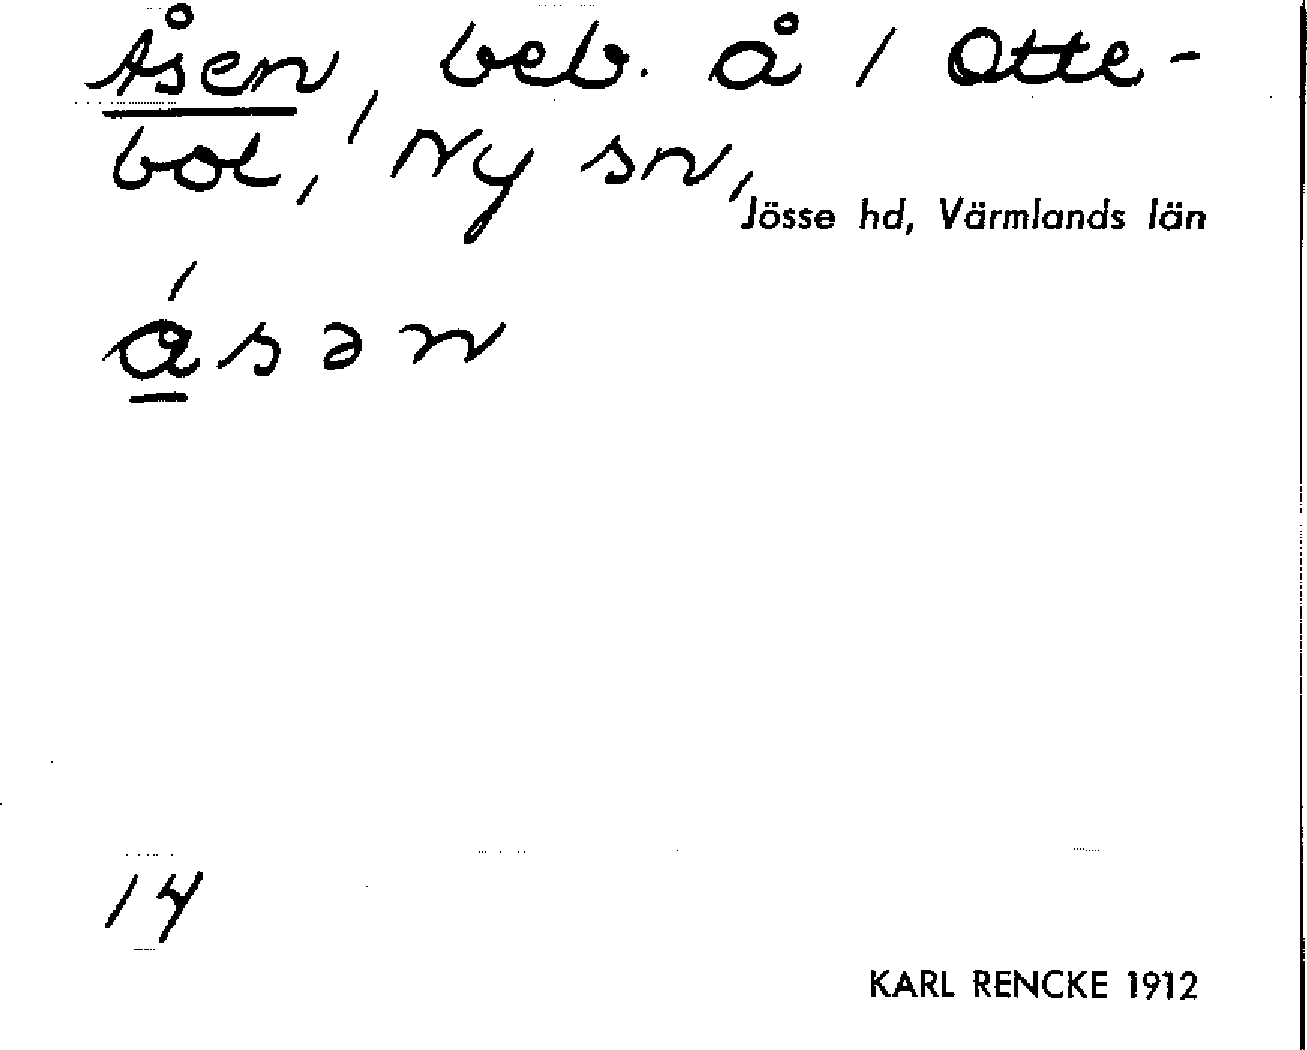 Åsen, beb. å 1 Otte-
bol, Ny sn,
Jösse hd, Värmlands län
ásən
14
KARL RENCKE 1912